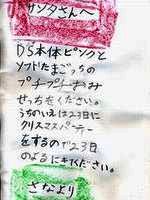 サンタさんへ
DS本体ピンクと
ソフトたまごっちの
プチプチおみ
せっちをください。
うちのいえは23日に
クリスマスパーテー
をするので23日
のよるにキてください。
さなより